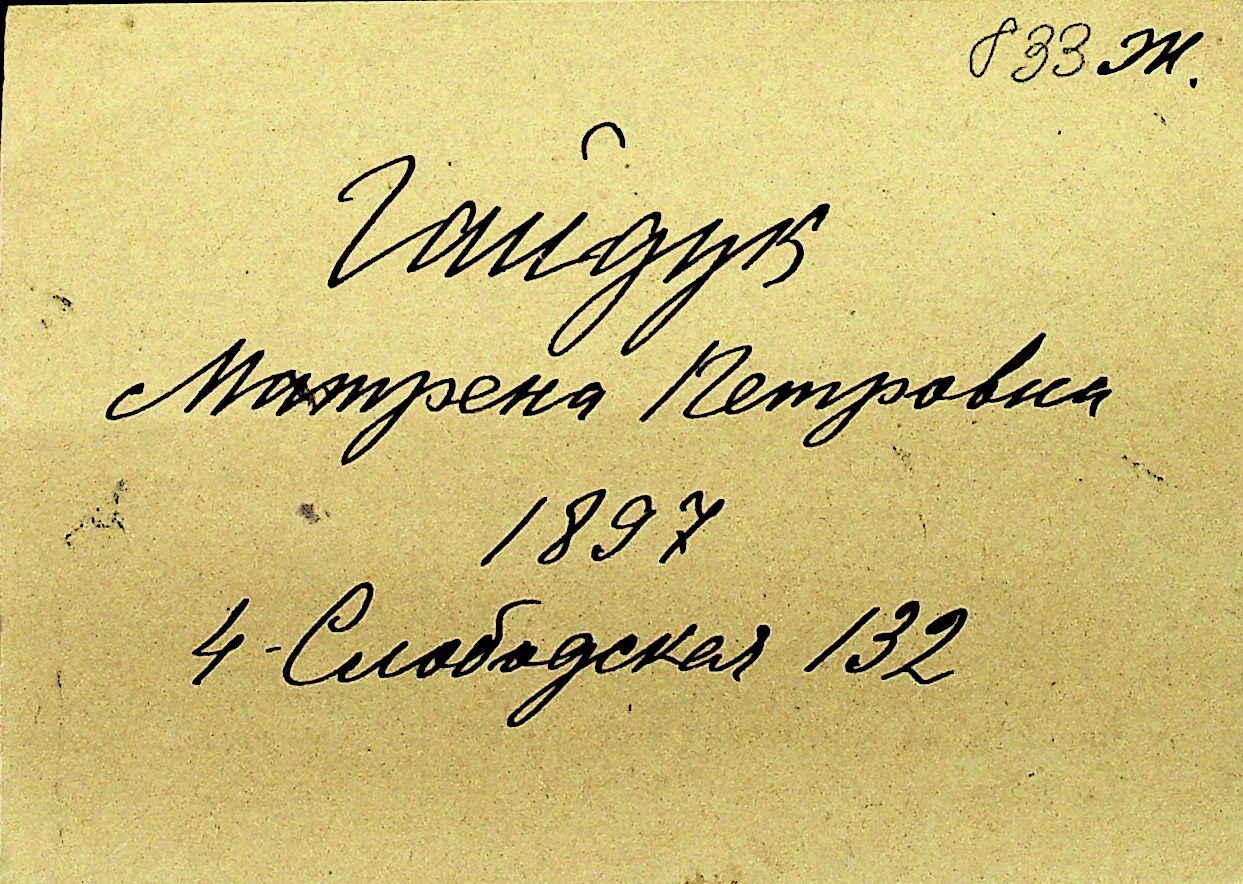 833 ж.
Гайдук
Матрена Петровна
1897
4-Слободская 132